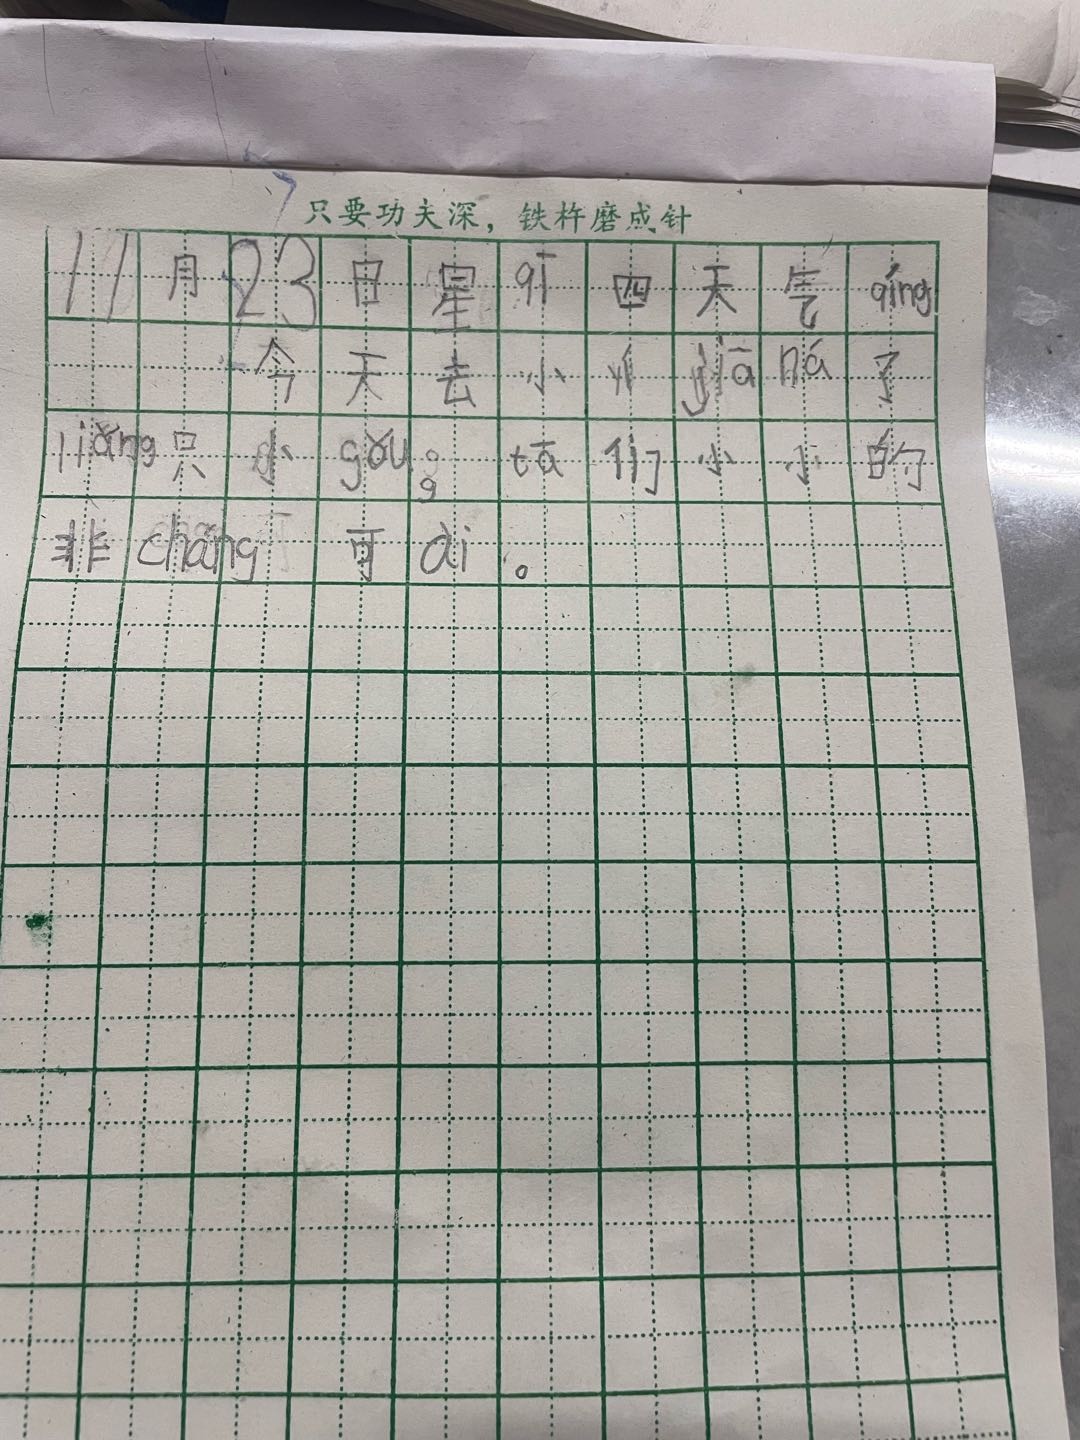 只要功夫深，铁杵磨成针
11月23日星qī四天气qíng
今天去小 jiā ná了
liǎng只小gǒu，tā们小小的
非cháng可ài。